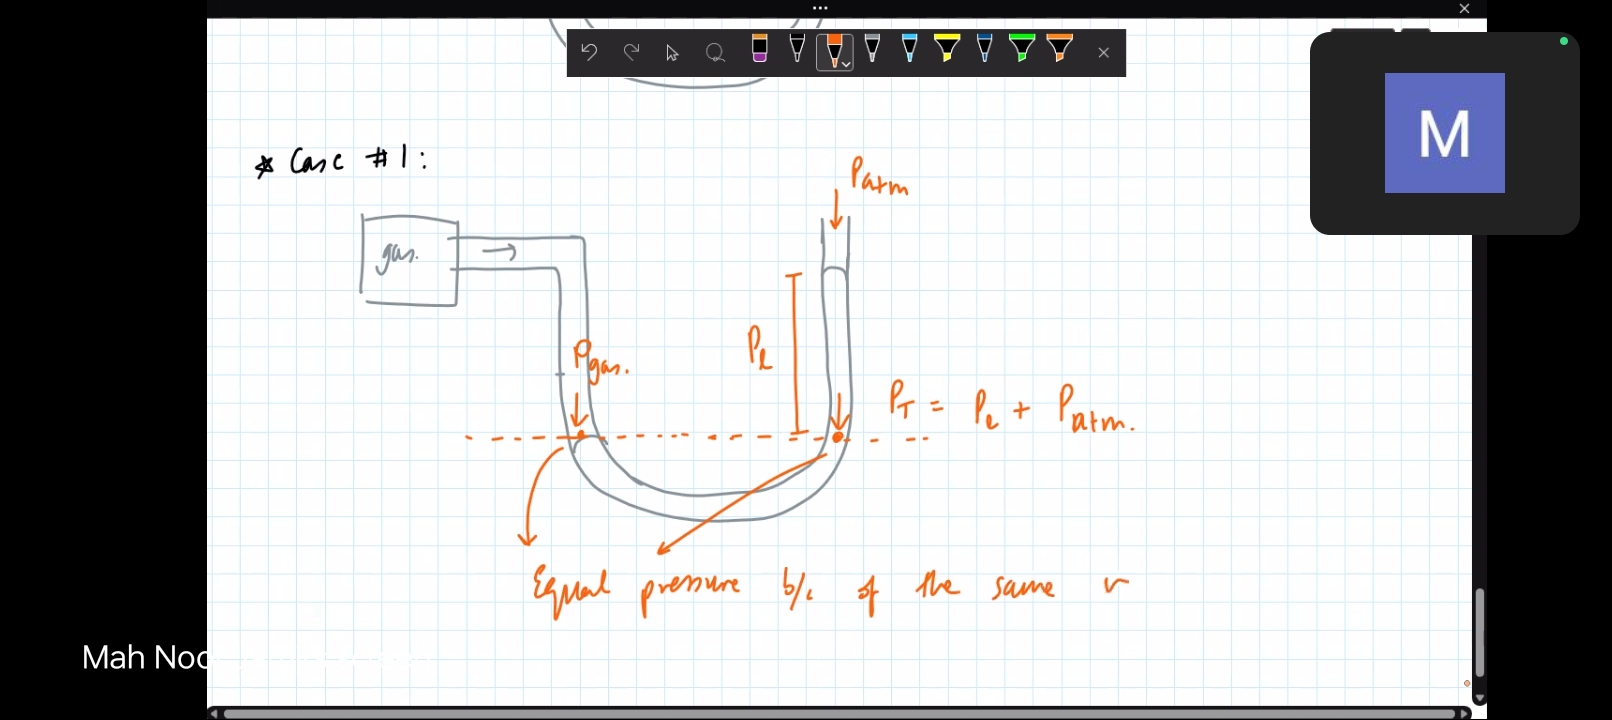 * Case #1:
Patm
gas.
Pgas.
Pl
PT = Pl + Patm.
Equal pressure b/c of the same
M
Mah Noo